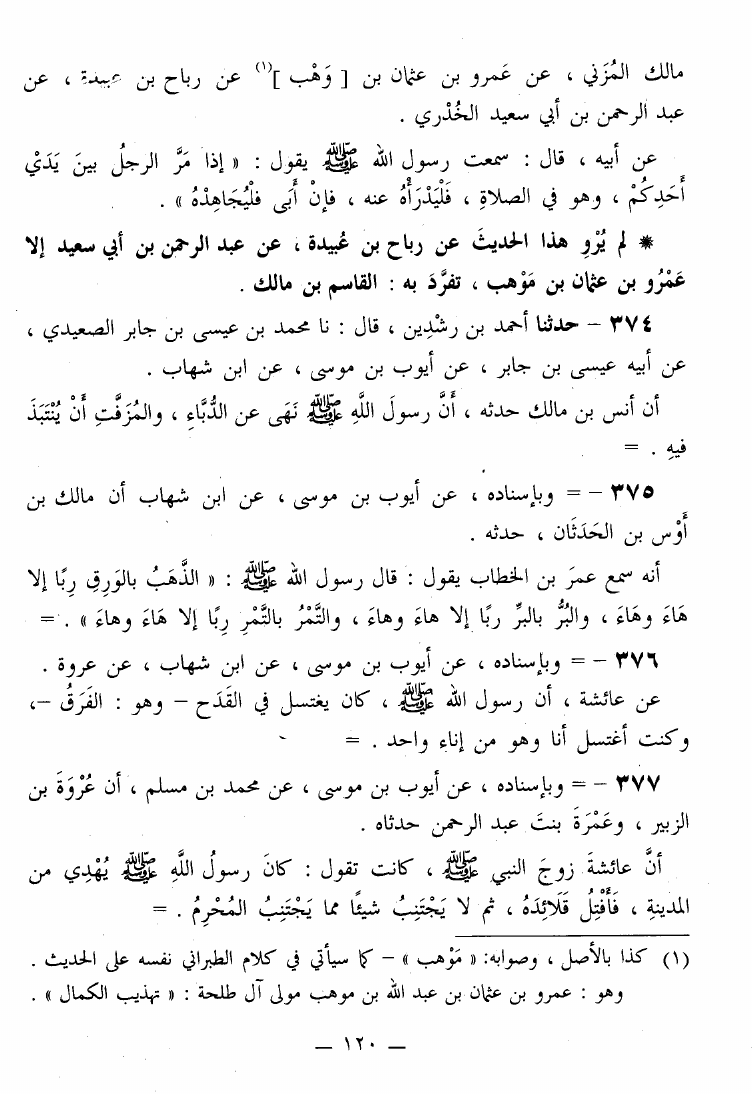 مالك المُزَني ، عن عَمرو بن عثمان بن [ وَهْب ](١) عن رباح بن عبيدة ، عن
عبد الرحمن بن أبي سعيد الخُدْري .
عن أبيه ، قال : سمعت رسول الله ﷺ يقول : « إذا مَرَّ الرجلُ بينَ يَدَيْ
أَحَدِكُمْ ، وهو في الصلاةِ ، فَلْيَدْرَأْهُ عنه ، فإنْ أَبَى فلْيُجَاهِدْهُ » .
* لم يُرْوِ هذا الحديثَ عن رباح بن عُبيدة ، عن عبد الرحمن بن أبي سعيد إلا
عَمْرُو بن عثمان بن مَوْهب ، تفرَّدَ به : القاسم بن مالك .
٣٧٤ – حدثنا أحمد بن رِشْدِين ، قال : نا محمد بن عيسى بن جابر الصعيدي ،
عن أبيه عيسى بن جابر ، عن أيوب بن موسى ، عن ابن شهاب .
أن أنس بن مالك حدثه ، أَنَّ رسولَ اللَّهِ ﷺ نَهَى عن الدُّبَّاءِ ، والمُزَفَّتِ أَنْ يُنْتَبَذَ
فيهِ . =
٣٧٥ – = وبإسناده ، عن أيوب بن موسى ، عن ابن شهاب أن مالك بن
أَوْس بن الحَدَثَان ، حدثه .
أنه سمع عمرَ بن الخطاب يقول : قال رسول الله ﷺ : « الذَّهَبُ بالوَرِقِ رِبًا إلا
هَاءَ وهَاءَ ، والبُرُّ بالبرِّ ربًا إلا هاءَ وهاءَ ، والتَّمْرُ بالتَّمْرِ رِبًا إلا هَاءَ وهاءَ » . =
٣٧٦ – = وبإسناده ، عن أيوب بن موسى ، عن ابن شهاب ، عن عروة .
عن عائشة ، أن رسول الله ﷺ ، كان يغتسل في القَدَح – وهو : الفَرَقُ – ،
وكنت أغتسل أنا وهو من إناءٍ واحد . =
٣٧٧ – = وبإسناده ، عن أيوب بن موسى ، عن محمد بن مسلم ، أن عُرْوَةَ بن
الزبير ، وعَمْرَةَ بنتَ عبد الرحمن حدثاه .
أنَّ عائشةَ زوجَ النبي ﷺ ، كانت تقول : كانَ رسولُ اللَّهِ ﷺ يُهْدِي من
المدينةِ ، فَأَفْتِلُ قَلَائِدَهُ ، ثم لا يَجْتَنِبُ شيئًا مما يَجْتَنِبُ المُحْرِمُ . =
(١) كذا بالأصل ، وصوابه: « مَوْهب » – كما سيأتي في كلام الطبراني نفسه على الحديث .
وهو : عمرو بن عثمان بن عبد الله بن موهب مولى آل طلحة : « تهذيب الكمال » .
– ١٢٠ –